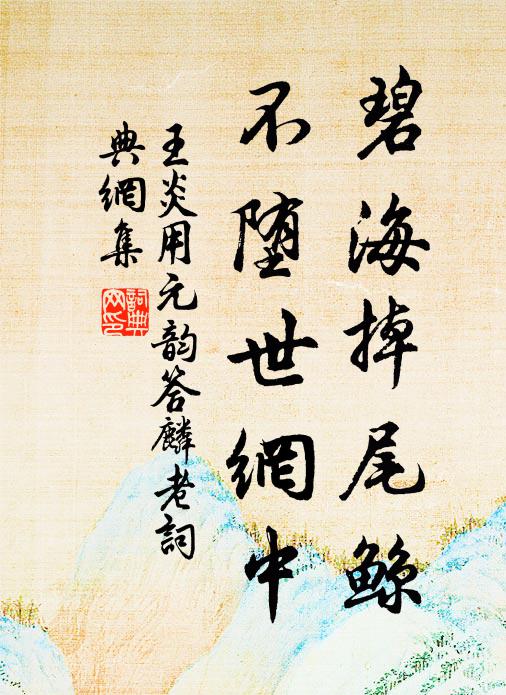 碧海掉尾鲸
不堕世網中
王炎用元韵答麟老詞
典網集
詞典網印